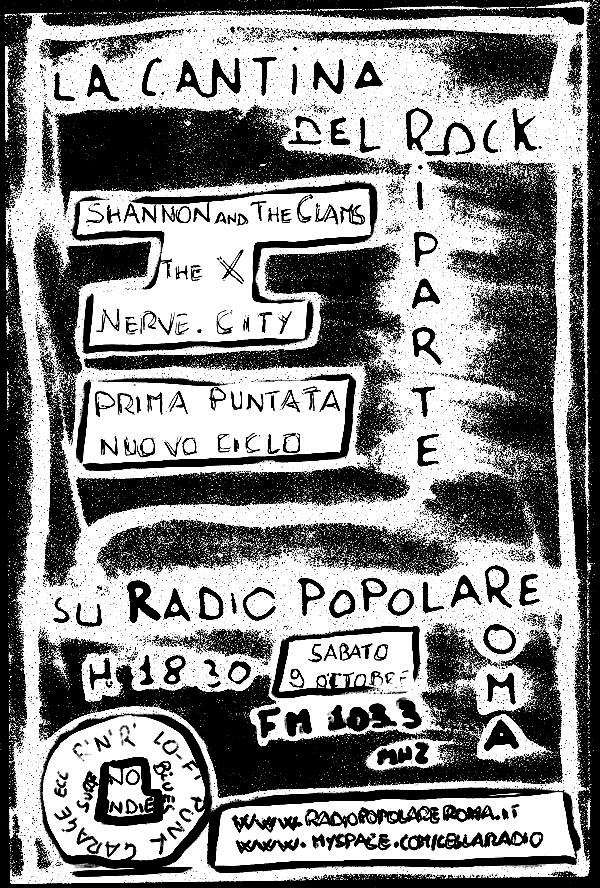 LA CANTINA
DEL ROCK
RIPARTE
SHANNON AND THE CLAMS
THE X
NERVE. CITY
PRIMA PUNTATA
NUOVO CICLO
SU RADIO POPOLARE
ROMA
H 18 30
SABATO
9 OTTOBRE
FM 103.3
MHZ
R'N'R' LO-FI PUNK GARAGE ECC
SURF
NO
INDIE
BLUES
WWW.RADIOPOPOLAREROMA.IT
WWW.MYSPACE.COM/CELLARADIO